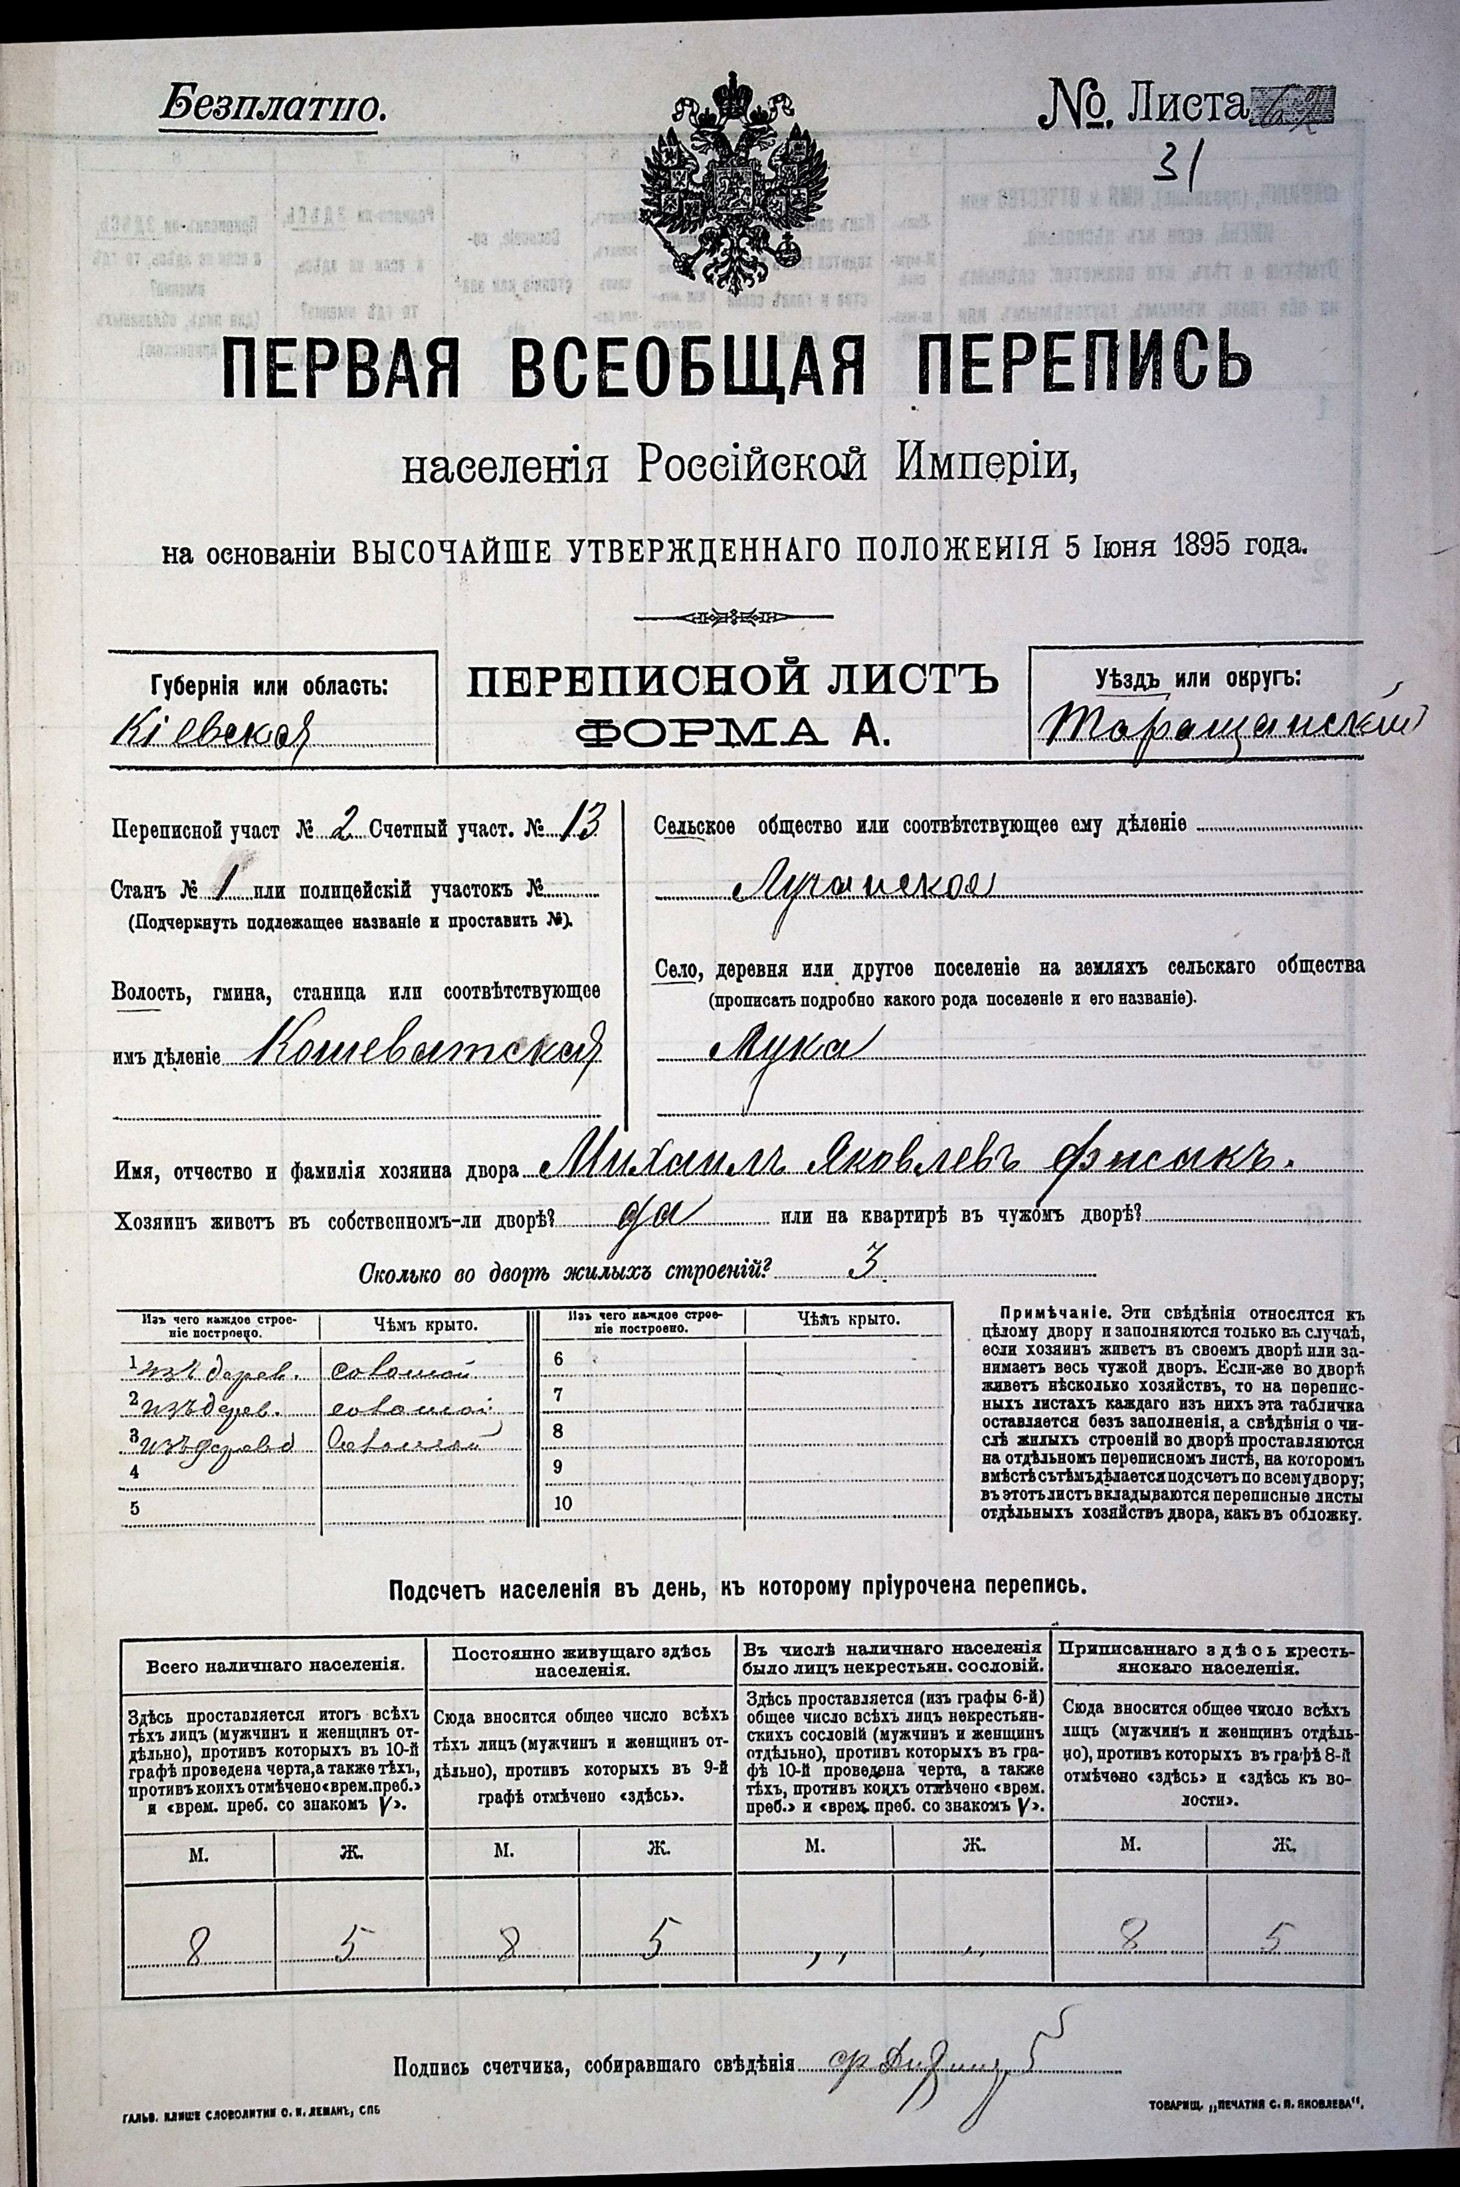 Безплатно.
№ Листа
31
ПЕРВАЯ ВСЕОБЩАЯ ПЕРЕПИСЬ
населенія Россійской Имперіи,
на основаніи ВЫСОЧАЙШЕ УТВЕРЖДЕННАГО ПОЛОЖЕНІЯ 5 Іюня 1895 года.
Губернія или область:
Кіевская
ПЕРЕПИСНОЙ ЛИСТЪ
ФОРМА А.
Уѣздъ или округъ:
Таращанскій
Переписной участ № 2 Счетный участ. № 13
Станъ № 1 или полицейскій участокъ №
(Подчеркнуть подлежащее названіе и проставить №).
Волость, гмина, станица или соотвѣтствующее
имъ дѣленіе Кошеватская
Сельское общество или соотвѣтствующее ему дѣленіе
Лучанское
Село, деревня или другое поселеніе на земляхъ сельскаго общества
(прописать подробно какого рода поселеніе и его названіе).
Лука
Имя, отчество и фамилія хозяина двора Михаилъ Яковлевъ
Хозяинъ живетъ въ собственномъ-ли дворѣ? да или на квартирѣ въ чужомъ дворѣ?
Сколько во дворѣ жилыхъ строеній? 3
Изъ чего каждое строе-
ніе построено.
Чѣмъ крыто.
1 изъ дерев. соломой
2 изъ дерев. соломой
3 изъ дерева соломой
4
5
Изъ чего каждое строе-
ніе построено.
Чѣмъ крыто.
6
7
8
9
10
Примѣчаніе. Эти свѣдѣнія относятся къ
цѣлому двору и заполняются только въ случаѣ,
если хозяинъ живетъ въ своемъ дворѣ или за-
нимаетъ весь чужой дворъ. Если-же во дворѣ
живетъ нѣсколько хозяйствъ, то на перепис-
ныхъ листахъ каждаго изъ нихъ эта табличка
оставляется безъ заполненія, а свѣдѣнія о чи-
слѣ жилыхъ строеній во дворѣ проставляются
на отдѣльномъ переписномъ листѣ, на которомъ
вмѣстѣ съ тѣмъ дѣлается подсчетъ по всему двору;
въ этотъ листъ вкладываются переписные листы
отдѣльныхъ хозяйствъ двора, какъ въ обложку.
Подсчетъ населенія въ день, къ которому пріурочена перепись.
Всего наличнаго населенія.
Здѣсь проставляется итогъ всѣхъ
тѣхъ лицъ (мужчинъ и женщинъ от-
дѣльно), противъ которыхъ въ 10-й
графѣ проведена черта, а также тѣхъ,
противъ коихъ отмѣчено «врем. преб.»
и «врем. преб. со знакомъ V».
М. Ж.
8 5
Постоянно живущаго здѣсь
населенія.
Сюда вносится общее число всѣхъ
тѣхъ лицъ (мужчинъ и женщинъ от-
дѣльно), противъ которыхъ въ 9-й
графѣ отмѣчено «здѣсь».
М. Ж.
8 5
Въ числѣ наличнаго населенія
было лицъ некрестьян. сословій.
Здѣсь проставляется (изъ графы 6-й)
общее число всѣхъ лицъ некрестьян-
скихъ сословій (мужчинъ и женщинъ
отдѣльно), противъ которыхъ въ гра-
фѣ 10-й проведена черта, а также
тѣхъ, противъ коихъ отмѣчено «врем.
преб.» и «врем. преб. со знакомъ V».
М. Ж.
„ „
Приписаннаго здѣсь кресть-
янскаго населенія.
Сюда вносится общее число всѣхъ
лицъ (мужчинъ и женщинъ отдѣль-
но), противъ которыхъ въ графѣ 8-й
отмѣчено «здѣсь» и «здѣсь къ во-
лости».
М. Ж.
8 5
Подпись счетчика, собиравшаго свѣдѣнія
ГАЛЬВ. КЛИШЕ СЛОВОЛИТНИ О. И. ЛЕМАНЪ, СПБ
ТОВАРИЩ. „ПЕЧАТНЯ С. П. ЯКОВЛЕВА“.